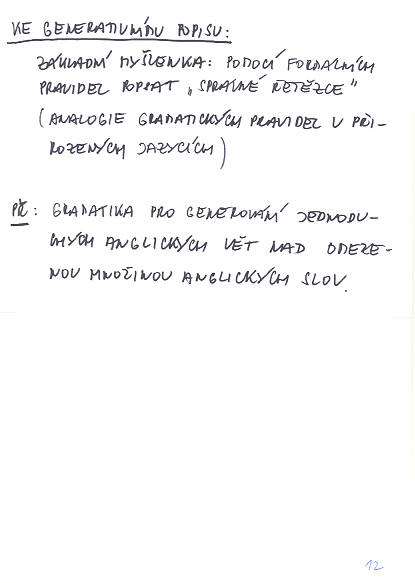 KE GENERATIVNÍMU POPISU:
ZÁKLADNÍ MYŠLENKA: POMOCÍ FORMÁLNÍCH
PRAVIDEL POPSAT „SPRÁVNÉ ŘETĚZCE"
(ANALOGIE GRAMATICKÝCH PRAVIDEL V PŘI-
ROZENÝCH JAZYCÍCH)
PŘ: GRAMATIKA PRO GENEROVÁNÍ JEDNODU-
CHÝCH ANGLICKÝCH VĚT NAD OMEZE-
NOU MNOŽINOU ANGLICKÝCH SLOV.
12